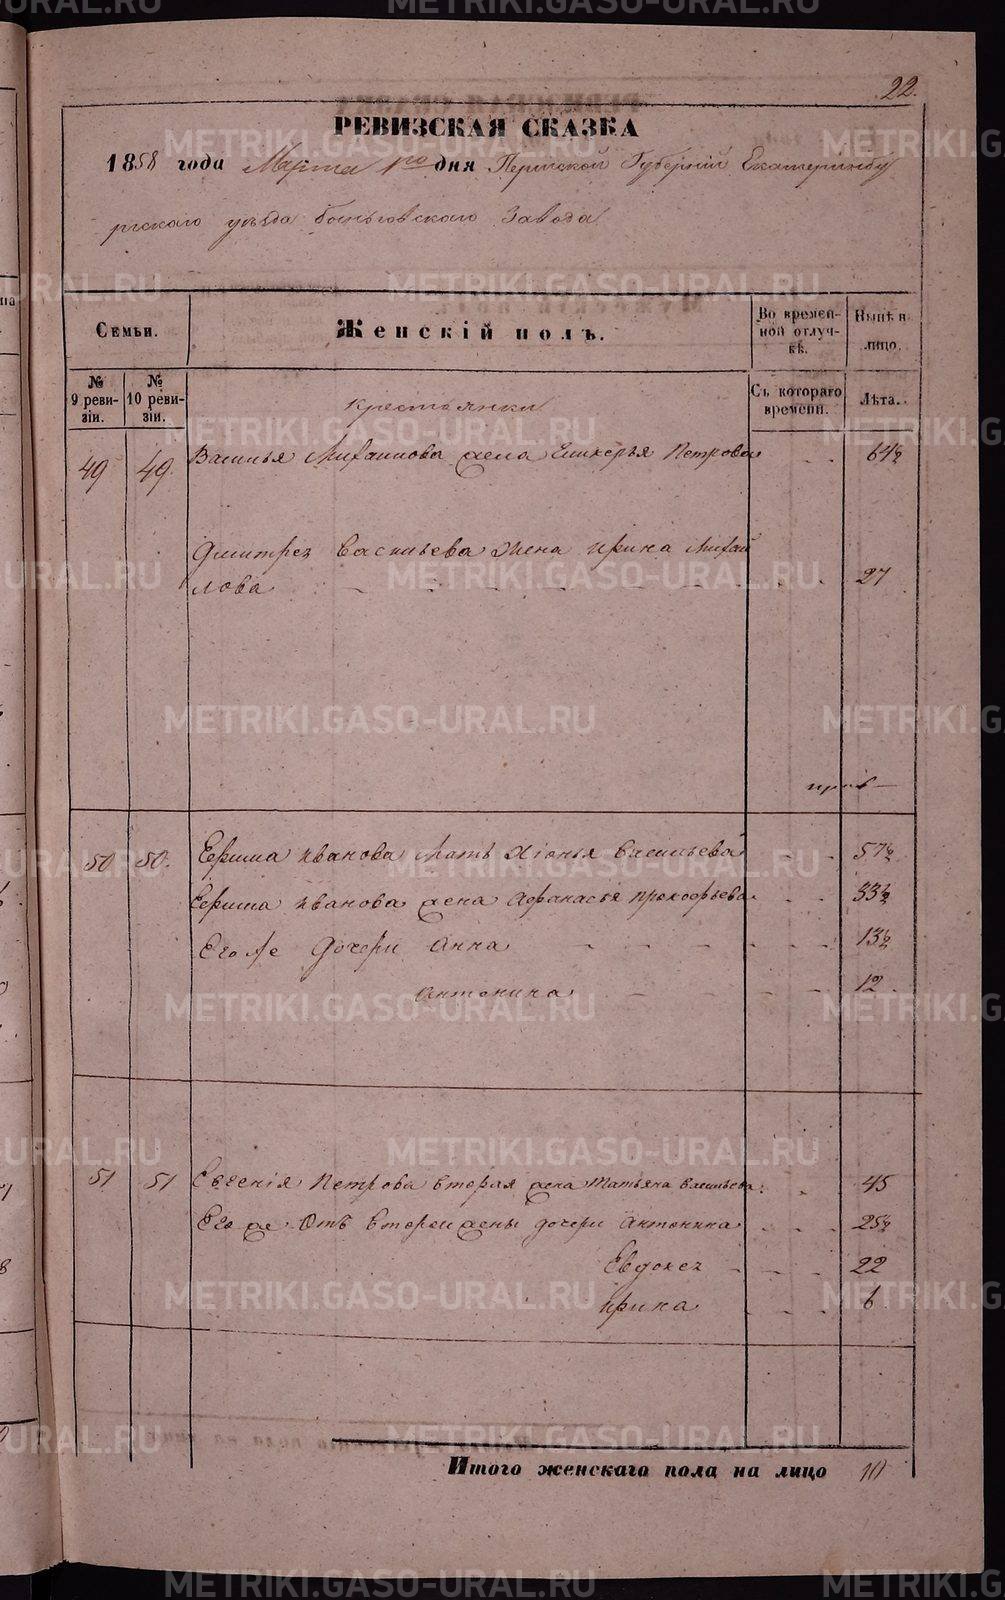 22.
РЕВИЗСКАЯ СКАЗКА
1858 года Марта 1го дня Пермской Губерніи Екатеринбу
ргскаго уѣзда Быньговскаго Завода
Семьи.
Женскій полъ.
Во времен-
ной отлуч-
кѣ.
Нынѣ н
лицо.
№
9 реви-
зіи.
№
10 реви-
зіи.
Съ котораго
времени.
Лѣта.
крестьянки
49 49. Василья Михаилова жена Гликерья Петрова 64½
Дмитрея Васильева Жена Ирина Михай
лова 27
50 50. Ефима Иванова Мать Хіонья Васильева 57½
Ефима Иванова жена Афанасья Прокофьева 33½
Его же Дочери Анна 13½
Антонина 12
51 51 Евгенія Петрова вторая жена Татьяна Васильева 45
Его же Отъ второй жены дочери Антонина 25½
Евдокея 22
Ирина 6
Итого женскаго пола на лицо 10
METRIKI.GASO-URAL.RU